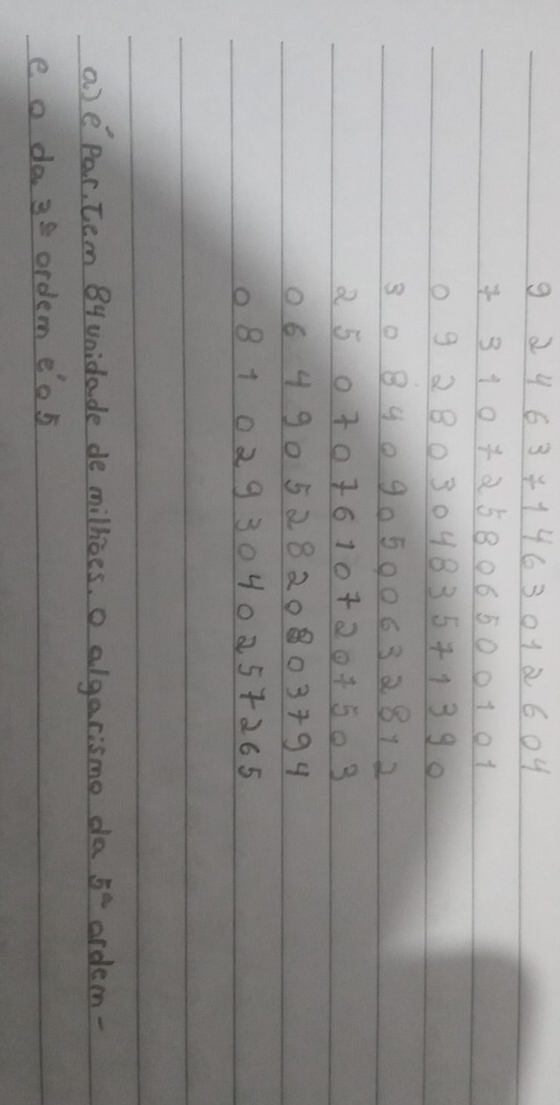 9 2 4 6 3 7 1 4 6 3 0 1 2 6 0 4
7 3 1 0 7 2 5 8 0 6 5 0 0 1 0 1
0 9 2 8 0 3 0 4 8 3 5 7 1 3 9 0
3 0 8 4 0 9 0 5 0 0 6 3 2 8 1 2
2 5 0 7 0 7 6 1 0 7 2 0 7 5 0 3
0 6 4 9 0 5 2 8 2 0 8 0 3 7 9 4
0 8 1 0 2 9 3 0 4 0 2 5 7 2 6 5
a) é par. Tem 84 unidade de milhões. o algarismo da 5ª ordem-
e o da 3ª ordem é o 5